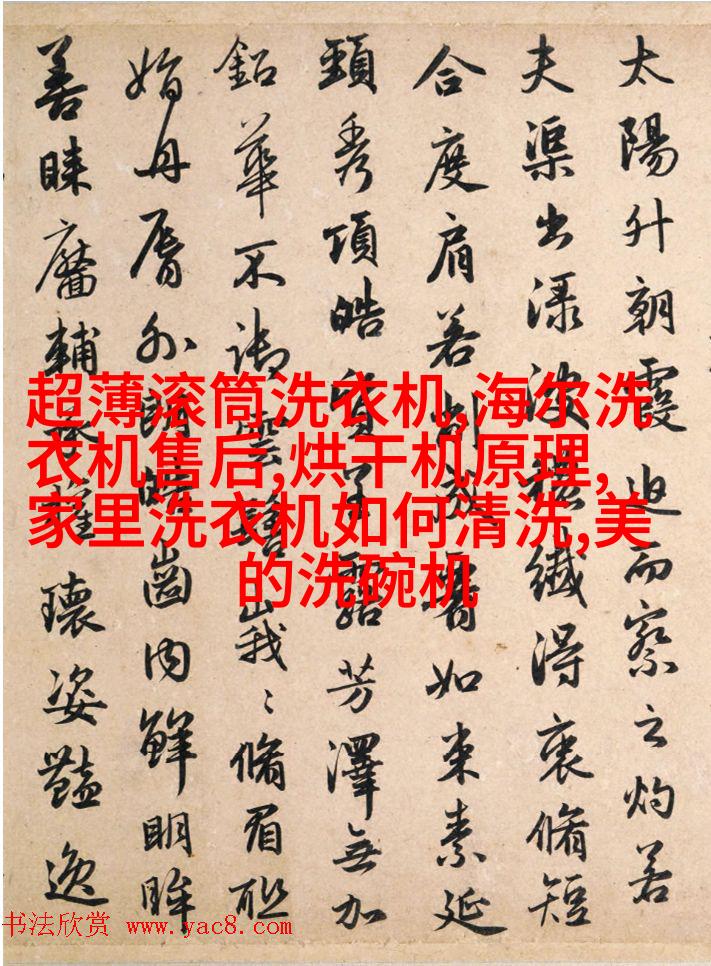 太陽升朝霞迫而察之灼若
夫渠出渌波穠纖得衷脩短
合度肩若削成腰如束素延
頸秀項皓質呈露芳澤無加
鉛華不御雲髻峩〻脩眉聯
娟丹脣外朗皓齒内鮮明眸
善睞靨輔承權瓌姿豔逸
超薄滚筒洗衣机,海尔洗
衣机售后,烘干机原理,
家里洗衣机如何清洗,美
的洗碗机
书法欣赏 www.yac8.com